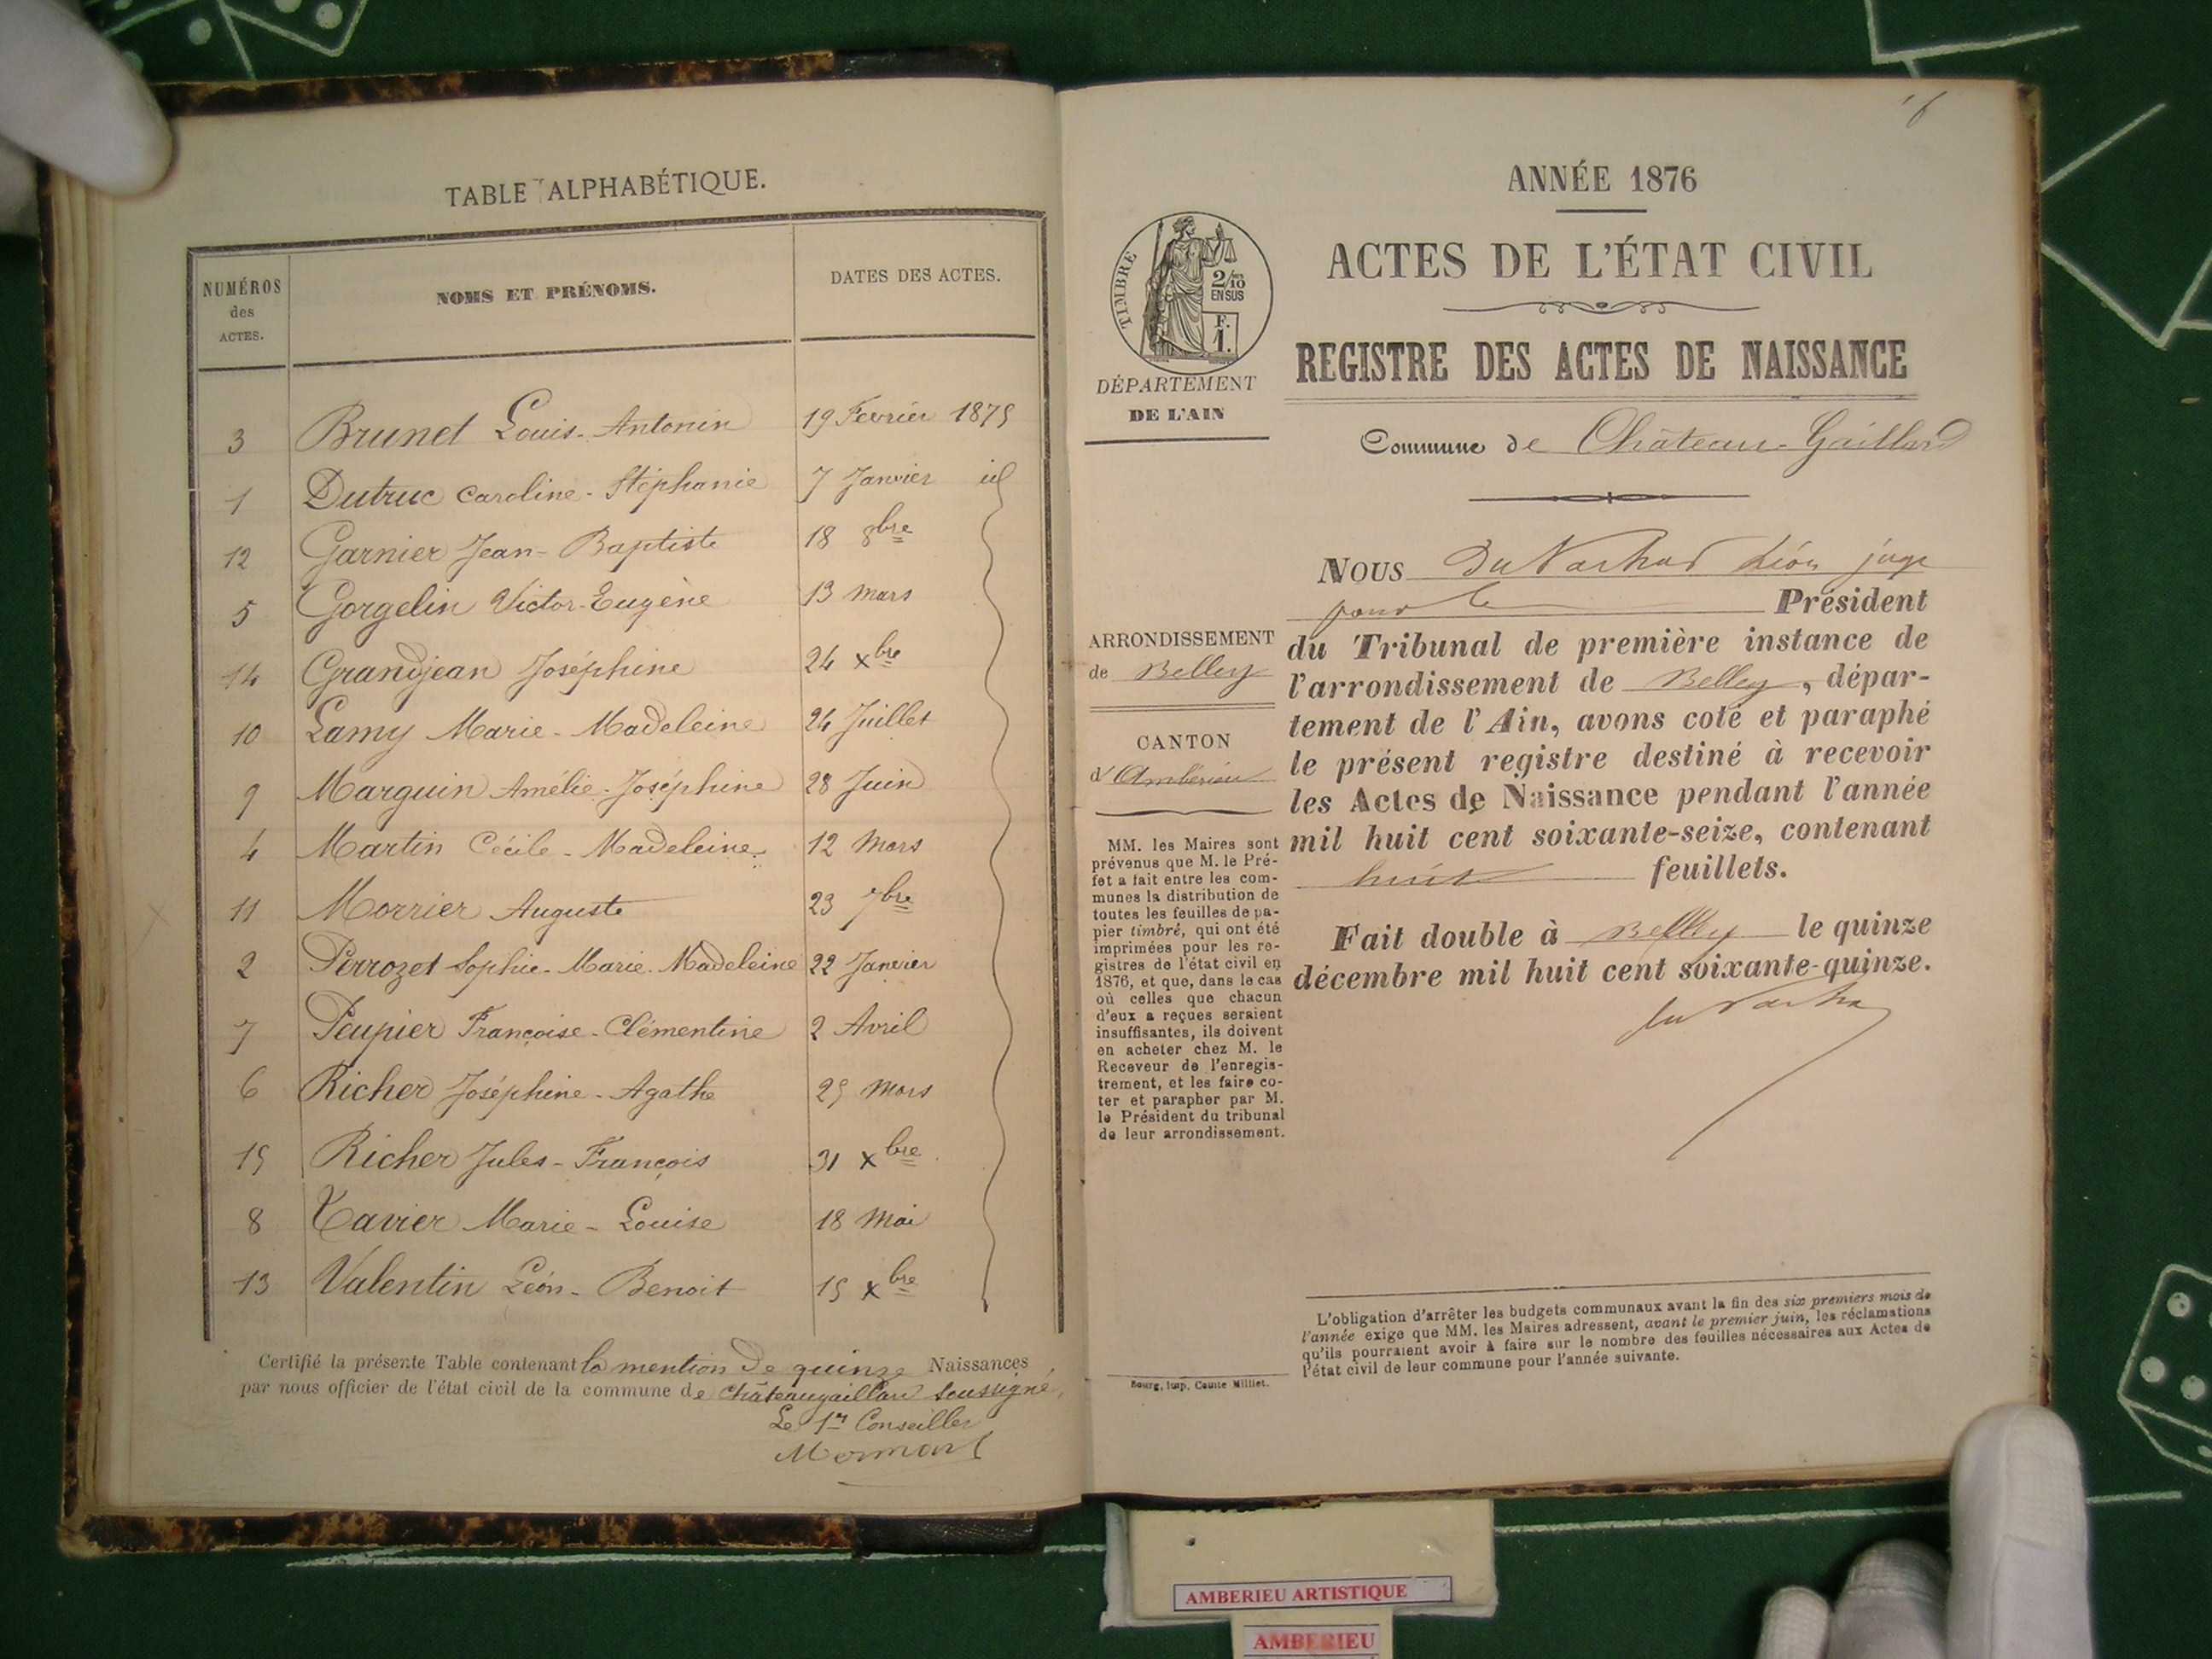 TABLE ALPHABÉTIQUE.
NUMÉROS des ACTES. NOMS ET PRÉNOMS. DATES DES ACTES.
3 Brunet Louis-Antonin 19 Fevrier 1875
1 Dutruc Caroline-Stéphanie 7 Janvier id
12 Garnier Jean-Baptiste 18 8bre
5 Gorgelin Victor-Eugène 13 mars
14 Grandjean Joséphine 24 xbre
10 Lamy Marie-Madeleine 24 Juillet
9 Marguin Amélie-Joséphine 28 Juin
4 Martin Cécile-Madeleine 12 Mars
11 Morrier Auguste 23 7bre
2 Perrozet Sophie-Marie-Madeleine 22 Janvier
7 Peupier Françoise-Clémentine 2 Avril
6 Richer Joséphine-Agathe 25 Mars
15 Richer Jules-François 31 xbre
8 Xavier Marie-Louise 18 Mai
13 Valentin Léon-Benoit 15 xbre
Certifié la présente Table contenant la mention de quinze Naissances
par nous officier de l'état civil de la commune de Châteaugaillard soussigné,
Le 1er Conseiller
Mermont
ANNÉE 1876
ACTES DE L'ÉTAT CIVIL
REGISTRE DES ACTES DE NAISSANCE
TIMBRE
2/10 EN SUS
F. 1.
DÉPARTEMENT
DE L'AIN
Commune de Château-Gaillard
ARRONDISSEMENT
de Belley
CANTON
d'Ambérieu
MM. les Maires sont
prévenus que M. le Pré-
fet a fait entre les com-
munes la distribution de
toutes les feuilles de pa-
pier timbré, qui ont été
imprimées pour les re-
gistres de l'état civil en
1876, et que, dans le cas
où celles que chacun
d'eux a reçues seraient
insuffisantes, ils doivent
en acheter chez M. le
Receveur de l'enregis-
trement, et les faire co-
ter et parapher par M.
le Président du tribunal
de leur arrondissement.
Nous Léon juge
pour le Président
du Tribunal de première instance de
l'arrondissement de Belley, dépar-
tement de l'Ain, avons coté et paraphé
le présent registre destiné à recevoir
les Actes de Naissance pendant l'année
mil huit cent soixante-seize, contenant
huit feuillets.
Fait double à Belley le quinze
décembre mil huit cent soixante-quinze.
L'obligation d'arrêter les budgets communaux avant la fin des six premiers mois de
l'année exige que MM. les Maires adressent, avant le premier juin, les réclamations
qu'ils pourraient avoir à faire sur le nombre des feuilles nécessaires aux Actes de
l'état civil de leur commune pour l'année suivante.
Bourg, imp. Comte Milliet.
AMBERIEU ARTISTIQUE
AMBERIEU